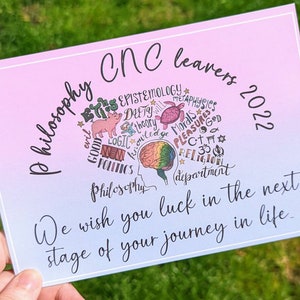 Philosophy CNC leavers 2022
EPISTEMOLOGY
METAPHYSICS
DEITY
theory
knowledge
MINDS
PLEASURES
GOOD
LOGIC
RELIGION
Philosophy department
We wish you luck in the next
stage of your journey in life.